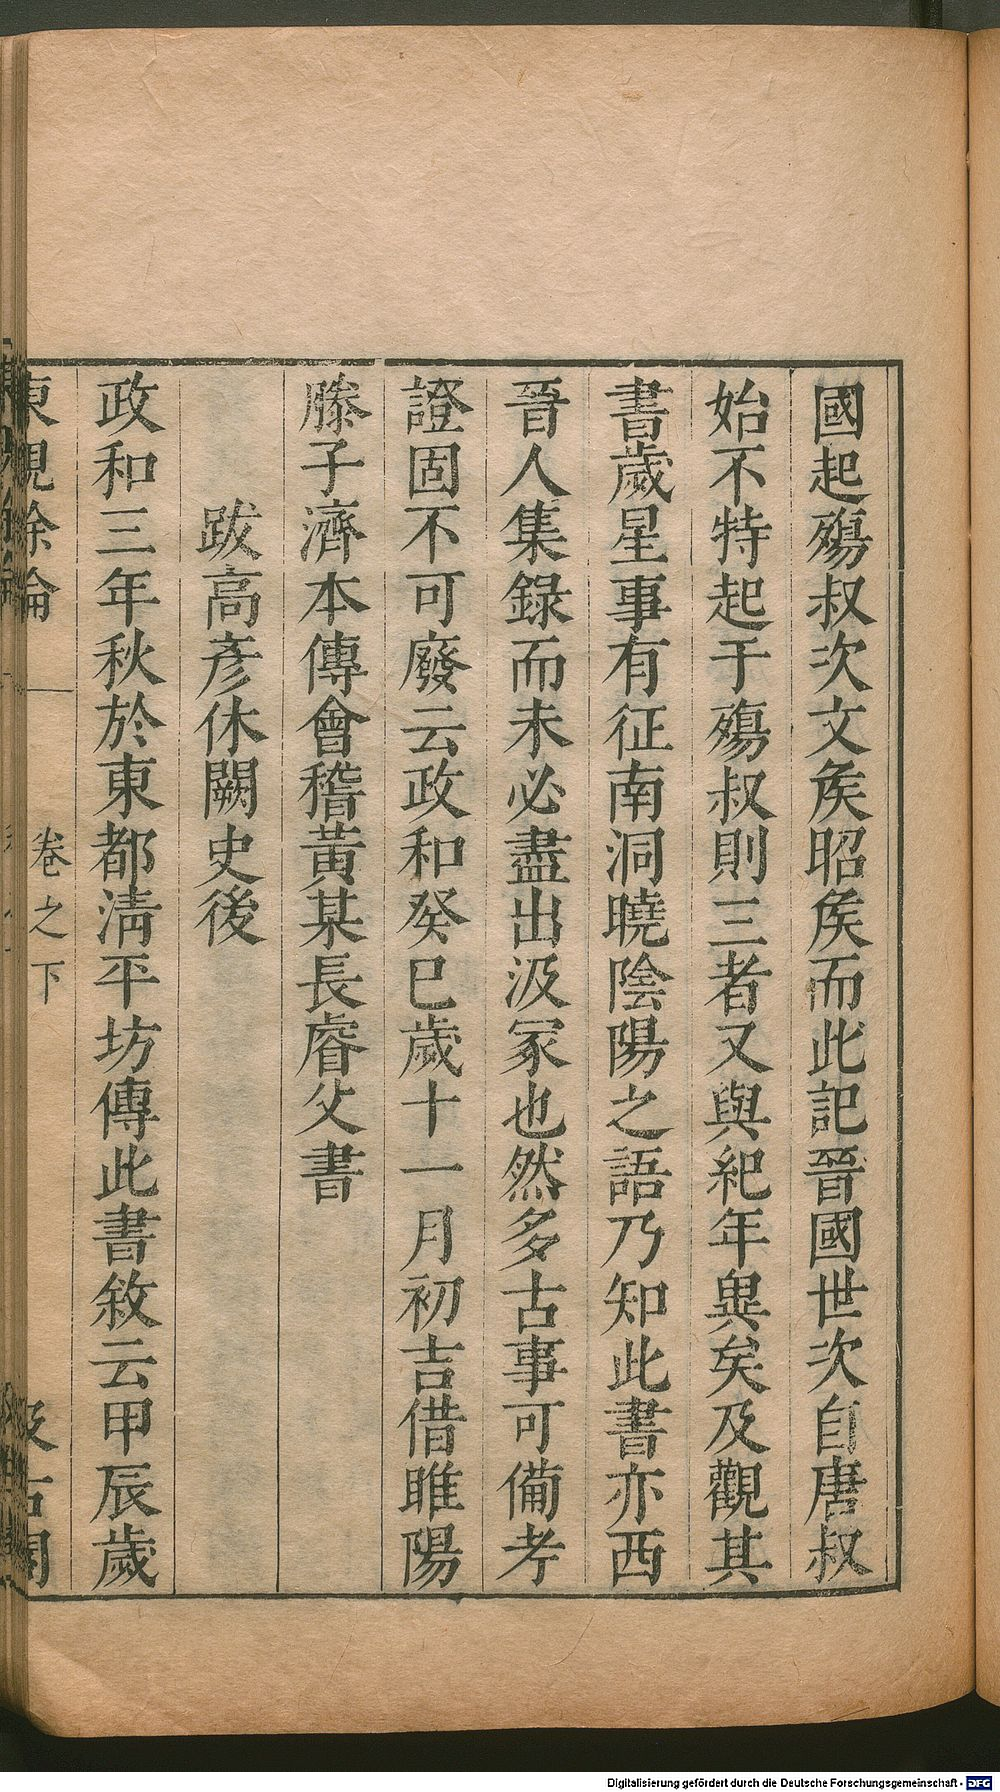 國起殤叔次文矦昭矦而此記晉國世次自唐叔
始不特起于殤叔則三者又與紀年異矣及觀其
書歲星事有征南洞曉陰陽之語乃知此書亦西
晉人集錄而未必盡出汲冢也然多古事可備考
證固不可廢云政和癸巳歲十一月初吉借睢陽
滕子濟本傳會稽黃某長睿父書
跋高彥休闕史後
政和三年秋於東都清平坊傳此書敘云甲辰歲
東觀餘論
卷之下
汲古閣
Digitalisierung gefördert durch die Deutsche Forschungsgemeinschaft - DFG